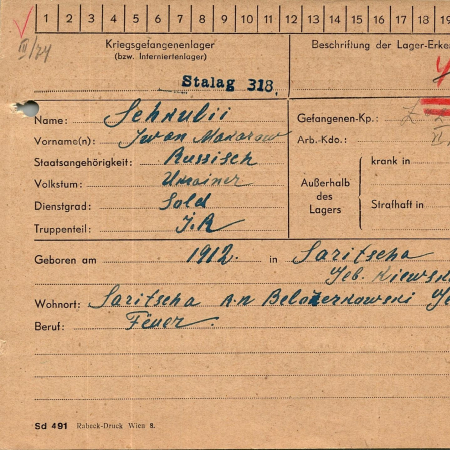 1 2 3 4 5 6 7 8 9 10 11 12 13 14 15 16 17 18 19
III/74
Kriegsgefangenenlager
(bzw. Interniertenlager)
Beschriftung der Lager-Erke
Stalag 318.
Name: Sehnulii
Vorname(n): Iwan Makarow
Staatsangehörigkeit: Russisch
Volkstum: Ukrainer
Dienstgrad: Sold
Truppenteil: J.R
Gefangenen-Kp.:
Arb.-Kdo.:
Außerhalb
des
Lagers
krank in
Strafhaft in
Geboren am 1912. in Saritscha
Geb. Kiewsk
Wohnort: Saritscha
Beruf:
Sd 491 Robeck-Druck Wien 8.